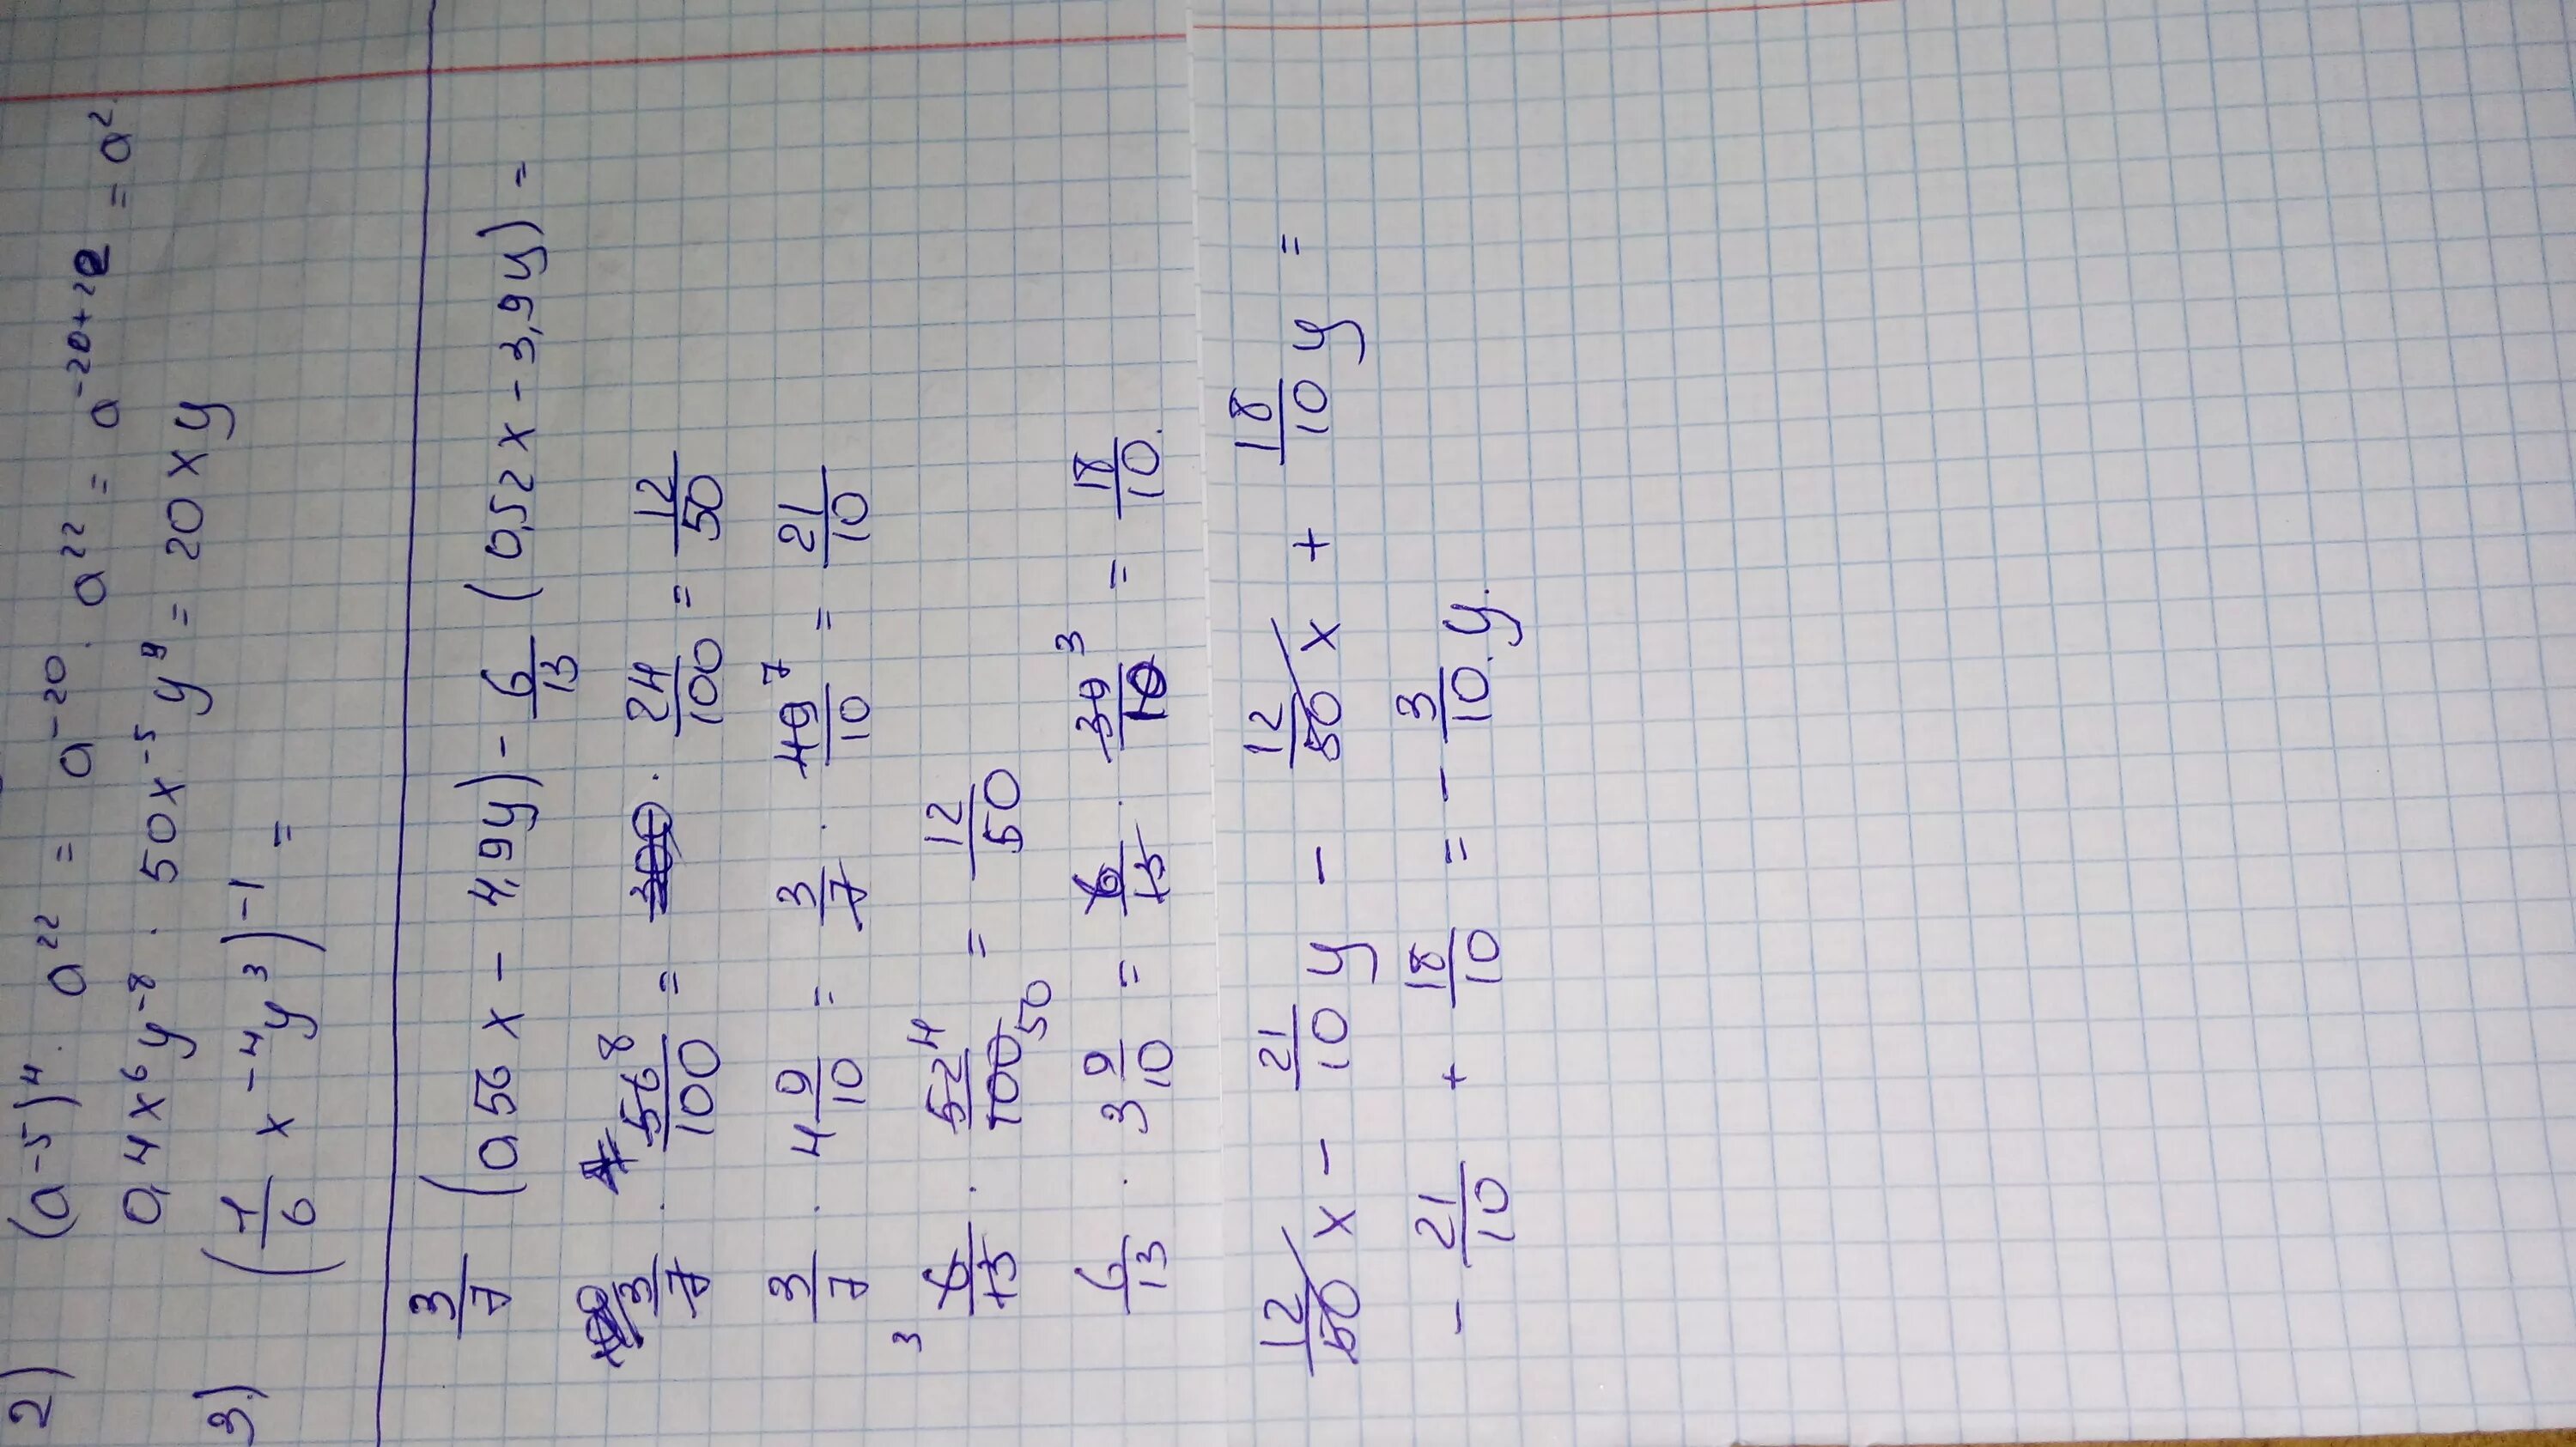 2) (a⁻⁵)⁴ · a²² = a⁻²⁰ · a²² = a⁻²⁰⁺²² = a²
0,4x⁶y⁻⁸ · 50x⁻⁵y⁹ = 20xy
3) (1/6 x⁻⁴y³)⁻¹ =
3/7 (0,56x - 4,9y) - 6/13 (0,52x - 3,9y) =
3/7 · 56 8/100 = · 24/100 = 12/50
3/7 · 4 9/10 = 3/7 · 49 7/10 = 21/10
3 6/13 · 52 4/100 50 = 12/50
6/13 · 3 9/10 = 6/13 · 39 3/10 = 18/10.
12/50 x - 21/10 y - 12/50 x + 18/10 y =
- 21/10 + 18/10 = - 3/10 y.